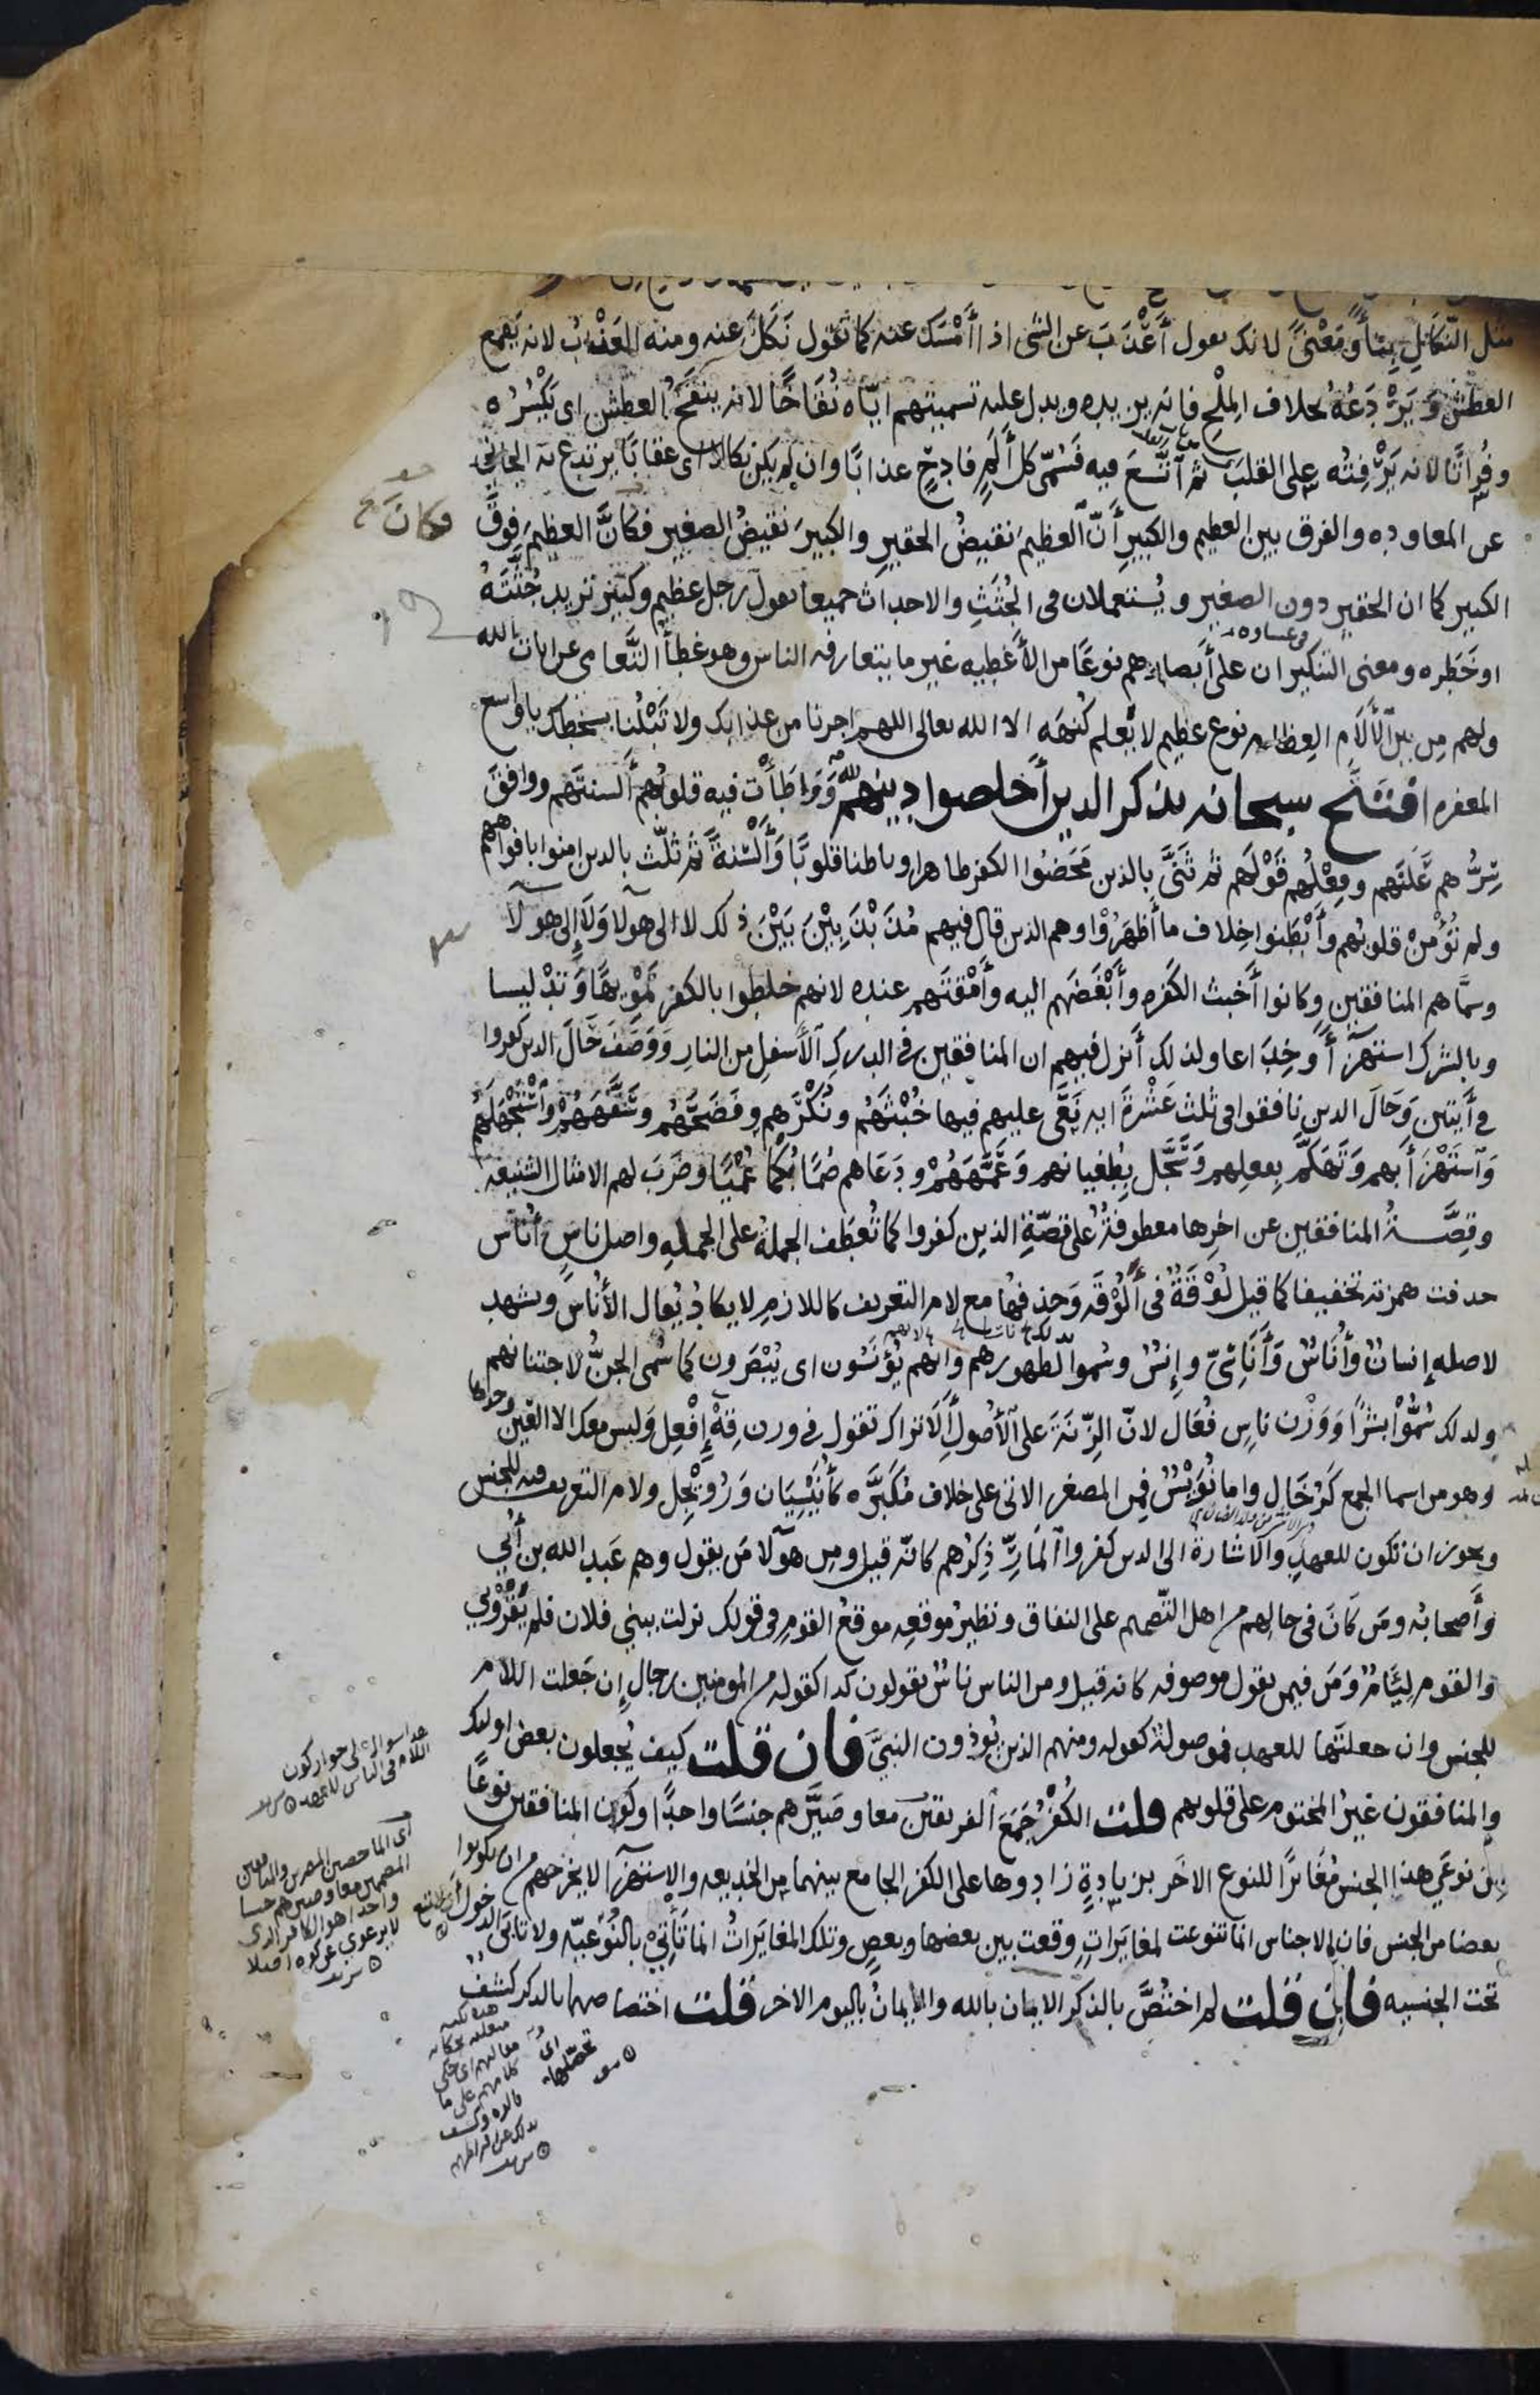 مثل النَّكَالِ بِنَاءً وَمَعْنىً لانك تقول أَعْذَبَ عن الشى اذا أَمْسَكَ عنه كما تقول نَكَلَ عنه ومنه العَذْبُ لانه يَقمع
العطش وَيَرْدَعُهُ بخلاف المِلْحِ فانه يزيده ويدل عليه تسميتهم ايّاه نُقَاخًا لانه ينقَخُ العطش اى يَكْسُرُه
وفُراتًا لانه يَرْفِتُه على القلب ثم اتَّسَعَ فيه فسُمّى كل أَلَمٍ فادِحٍ عذابًا وان لم يكن نكالا اى عقابًا يرتدع به الجانى
عن المعاودة والفرق بين العظيم والكبيرِ أَنَّ العظيمَ نقيضُ الحقيرِ والكبيرَ نقيضُ الصغيرِ فكانَّ العظيمَ فوقَ
فكانَ
الكبير كما ان الحقير دون الصغير ويُستعملان فى الجُثَثِ والاحداث جميعا تقول رجل عظيم وكبير تريد جُثَّتَهُ
او خَطَره ومعنى التنكير ان على أَبصارهم نوعًا من الأَغطيه غير ما يتعارفه الناس وهو غطأ التَّعامى عن ايات الله
ولهم مِن بين الآلَامِ العِظام نوع عظيم لا يُعلم كُنهَه الا الله تعالى اللهم اجرنا من عذابك ولا تَبْلُنا بسخطك ياواسع
المغفره افتَتَح سبحانه بذكر الذين أَخلصوا دِينهم لله وَوَاطَأَت فيه قلوبُهم أَلسنتَهم ووافقَ
سِرُّهم عَلَنَهم وفِعْلُهم قَوْلَهم ثم ثَنَّى بالذين مَحَضُوا الكفر ظاهرا وباطنا قلوبًا وَأَلْسِنَةً ثم ثلّث بالذين امنوا بافواههم
ولم تُؤْمِنْ قلوبُهم وأَبْطَنوا خِلاف ما أَظهَرُوا وهم الذين قال فيهم مُذَبْذَبِيْنَ بَيْنَ ذلك لا الى هولا وَلَا إِلى هولا
وسمَّاهم المنافقين وكانوا أَخبث الكفره وأَبْغَضَهم اليه وأَمْقَتَهم عنده لانهم خلطوا بالكفر تمويهًا وَتَدْليسا
وبالشرك استهزآءً وخِداعا ولذلك أَنزل فيهم ان المنافقين فى الدركِ الأَسفلِ من النارِ وَوَصَفَ حَالَ الذين كفروا
فى آيتين وَحَالَ الذين نافقوا فى ثلث عَشْرَةَ ايه نَعَى عليهم فيها خُبْثَهُم ونُكْرَهم وفَضَحَهُم وسَفَّهَهُمْ واسْتَجْهَلَهُم
وَاستَهْزَأَ بهم وَتَهَكَّمَ بفعلهم وَسَجَّل بِطُغيانهم وَعَمَّهَهُمْ ودَعَاهم صُمًّا بُكْمًا عُمْيًا وضَرَبَ لهم الامثال الشنيعه
وقِصَّةُ المنافقين عن اخرِها معطوفةٌ على قصّةِ الذين كفروا كما تُعطَف الجملةُ على الجملهِ واصل ناسٍ أُناس
حذفت همزته تخفيفا كما قيل لُوْقَةٌ فى أَلُوْقَه وَحذفها مع لام التعريف كاللازم لا يكاد يُقال الأُناس ويشهد
لاصله إنسانٌ وأُنَاسٌ وَأَنَاسِىُّ وإِنسٌ وسُموا لظهورهم وانهم يُؤنَسُون اى يُبْصَرون كما سُمى الجنُّ لاجتنانهم
ولذلك سُمُّوا بشَرًا وَوَزْن ناسٍ فُعَال لانّ الزِّنَةَ على الأُصولِ أَلَا تراك تقول فى وزن قِهْ إِفْعِل وَليس معك الا العَين وحدها
وهو من اسما الجمع كَرُخَالٍ واما نُوَيْسٌ فمِن المصغر الاتى على خلاف مُكَبَّرِه كأُنَيْسِيَان وَرُوَيْجِلٍ ولام التعريف فيه للجنس
ويجوز ان تكون للعهدِ والاشارة الى الذين كفروا المَارِّ ذِكرُهم كانّه قيل ومِن هؤلا مَن يقول وهم عَبد الله بن أُبَي
وأَصحابُه ومَن كَانَ فى حالِهم من اهل التّصميم على النفاق ونظيرُ موقعِه موقعُ القومِ فى قولك نزلت ببني فلان فلم يَقْرُوْنِي
والقوم لِئَامٌ وَمَن فى من يقول موصوفه كانه قيل ومن الناس ناسٌ يقولون كذا كقوله من المومنين رجال إِن جَعلت اللام
للجنس وان جعلتَها للعهد فموصولة كقوله ومنهم الذين يُؤذون النبىَّ فان قلت كيف يُجعلون بعض اولئك
والمنافقون غيرُ المختوم على قلوبهم قلت الكُفْرُ جَمَعَ الفريقين معا وصَيَّرَهم جنسًا واحدًا وكَون المنافقين نوعًا
مِن نوعَي هذا الجنس مُغَايرًا للنوع الاخَر بزيادةٍ زادوها على الكفر الجامع بينهما مِن الخديعه والاستهزآء لا يخرجهم من ان يكونوا
بعضا من الجنس فان الاجناس انما تنوعت لمغايَراتٍ وقعت بين بعضها وبعضٍ وتلك المغايَراتُ انما تَأتِيْ بالنَّوْعيّه ولا تابَى الدخول
تحت الجنسيه فان قلت لم اختُصَّ بالذكر الايمان بالله والايمانُ باليوم الاخر قلت اختصاصهما بالذكر كشفٌ
هذا سوال على جواز كون
اللام فى الناس للعهد